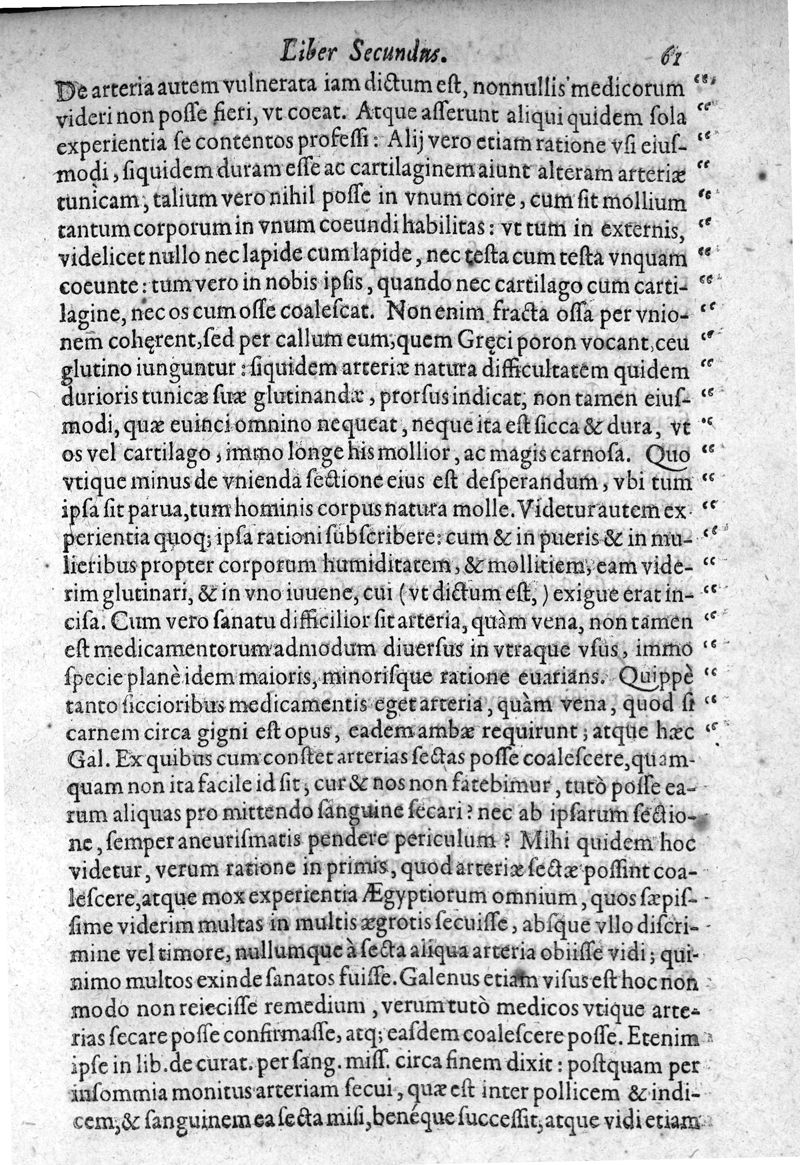 Liber Secundus. 61
De arteria autem vulnerata iam dictum est, nonnullis medicorum “
videri non posse fieri, vt coeat. Atque asserunt aliqui quidem sola “
experientia se contentos professi: Alij vero etiam ratione vsi eius- “
modi, siquidem duram esse ac cartilaginem aiunt alteram arteriæ “
tunicam, talium vero nihil posse in vnum coire, cum sit mollium “
tantum corporum in vnum coeundi habilitas: vt tum in externis, “
videlicet nullo nec lapide cum lapide, nec testa cum testa vnquam “
coeunte: tum vero in nobis ipsis, quando nec cartilago cum carti- “
lagine, nec os cum osse coalescat. Non enim fracta ossa per vnio- “
nem cohęrent, sed per callum eum, quem Gręci poron vocant, ceu “
glutino iunguntur: siquidem arteriæ natura difficultatem quidem “
durioris tunicæ suæ glutinandæ, prorsus indicat, non tamen eius- “
modi, quæ euinci omnino nequeat, neque ita est sicca & dura, vt “
os vel cartilago, immo longe his mollior, ac magis carnosa. Quo “
vtique minus de vnienda sectione eius est desperandum, vbi tum “
ipsa sit parua, tum hominis corpus natura molle. Videtur autem ex “
perientia quoq; ipsa rationi subscribere: cum & in pueris & in mu- “
lieribus propter corporum humiditatem, & mollitiem, eam vide- “
rim glutinari, & in vno iuuene, cui (vt dictum est,) exigue erat in- “
cisa. Cum vero sanatu difficilior sit arteria, quàm vena, non tamen “
est medicamentorum admodum diuersus in vtraque vsus, immo “
specie planè idem maioris, minorisque ratione euarians. Quippè “
tanto siccioribus medicamentis eget arteria, quàm vena, quod si “
carnem circa gigni est opus, eadem ambæ requirunt; atque hæc “
Gal. Ex quibus cum constet arterias sectas posse coalescere, quam-
quam non ita facile id sit, cur & nos non fatebimur, tutò posse ea-
rum aliquas pro mittendo sanguine secari? nec ab ipsarum sectio-
ne, semper aneurismatis pendere periculum? Mihi quidem hoc
videtur, verum ratione in primis, quod arteriæ sectæ possint coa-
lescere, atque mox experientia Ægyptiorum omnium, quos sæpis-
sime viderim multas in multis ægrotis secuisse, absque vllo discri-
mine vel timore, nullumque à secta aliqua arteria obiisse vidi; qui-
nimo multos exinde sanatos fuisse. Galenus etiam visus est hoc non
modo non reiecisse remedium, verum tutò medicos vtique arte-
rias secare posse confirmasse, atq; easdem coalescere posse. Etenim
ipse in lib. de curat. per sang. miss. circa finem dixit: postquam per
insommia monitus arteriam secui, quæ est inter pollicem & indi-
cem, & sanguinem ea secta misi, benéque successit, atque vidi etiam